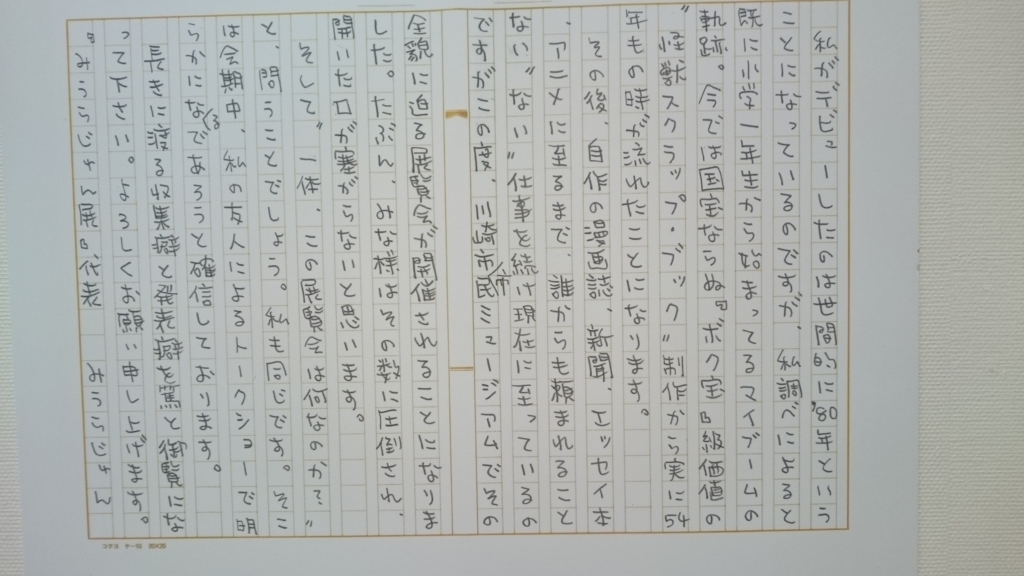 私がデビューしたのは世間的に'80年という
ことになっているのですが、私調べによると
既に小学一年生から始まってるマイブームの
軌跡。今では国宝ならぬ『ボク宝』級価値の
“怪獣スクラップ・ブック”制作から実に54
年もの時が流れたことになります。
その後、自作の漫画誌、新聞、エッセイ本
、アニメに至るまで、誰からも頼まれること
ない“ない”仕事を続け現在に至っているの
ですがこの度、川崎市市民ミュージアムでその
全貌に迫る展覧会が開催されることになりま
した。たぶん、みな様はその数に圧倒され、
開いた口が塞がらないと思います。
そして“一体、この展覧会は何なのか?”
と、問うことでしょう。私も同じです。そこ
は会期中、私の友人によるトークショーで明
らかになるであろうと確信しております。
長きに渡る収集癖と発表癖を篤と御覧にな
って下さい。よろしくお願い申し上げます。
『みうらじゅん展』代表 みうらじゅん
コクヨ ケー10 20X20